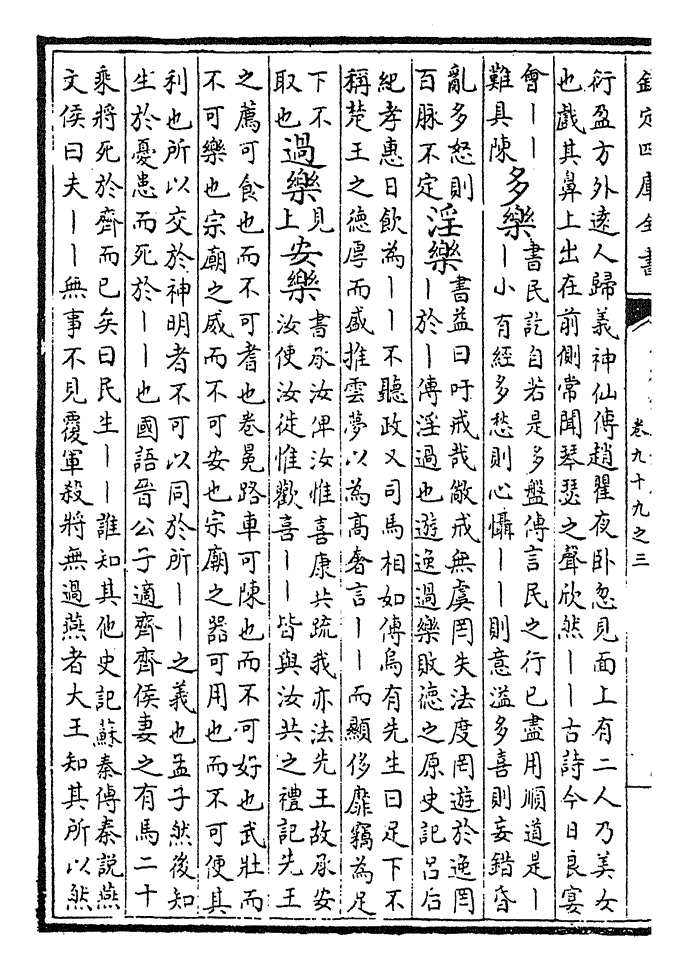 欽定四庫全書
卷九十九之三
衍盈方外遠人歸義神仙傳趙瞿夜卧忽見面上有二人乃美女
也戲其鼻上出在前側常聞琴瑟之聲欣然丨丨古詩今日良宴
會丨丨
難具陳
多樂
書民訖自若是多盤傳言民之行已盡用順道是丨
丨小有經多愁則心懾丨丨則意溢多喜則妄錯昏
亂多怒則
百脉不定
淫樂
書益曰吁戒哉儆戒無虞罔失法度罔遊於逸罔
丨於丨傳淫過也遊逸過樂敗德之原史記呂后
紀孝惠日飲為丨丨不聽政又司馬相如傳烏有先生曰足下不
稱楚王之德厚而盛推雲夢以為高奢言丨丨而顯侈靡竊為足
下不
取也
過樂
見
上
安樂
書承汝俾汝惟喜康共疏我亦法先王故承安
汝使汝徙惟歡喜丨丨皆與汝共之禮記先王
之薦可食也而不可耆也卷冕路車可陳也而不可好也武壯而
不可樂也宗廟之威而不可安也宗廟之器可用也而不可便其
利也所以交於神明者不可以同於所丨丨之義也孟子然後知
生於憂患而死於丨丨也國語晉公子適齊齊侯妻之有馬二十
乘將死於齊而已矣曰民生丨丨誰知其他史記蘇秦傳秦說燕
文侯曰夫丨丨無事不見覆軍殺將無過燕者大王知其所以然